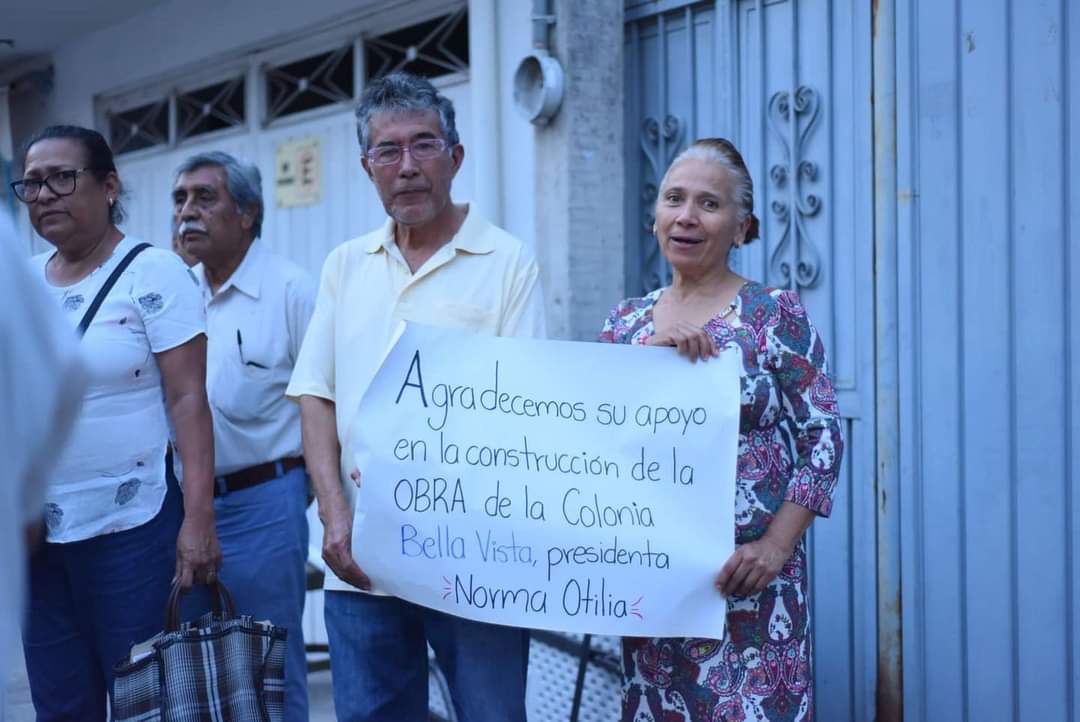 Agradecemos su apoyo
en la construcción de la
OBRA de la Colonia
Bella Vista, presidenta
Norma Otilia
E